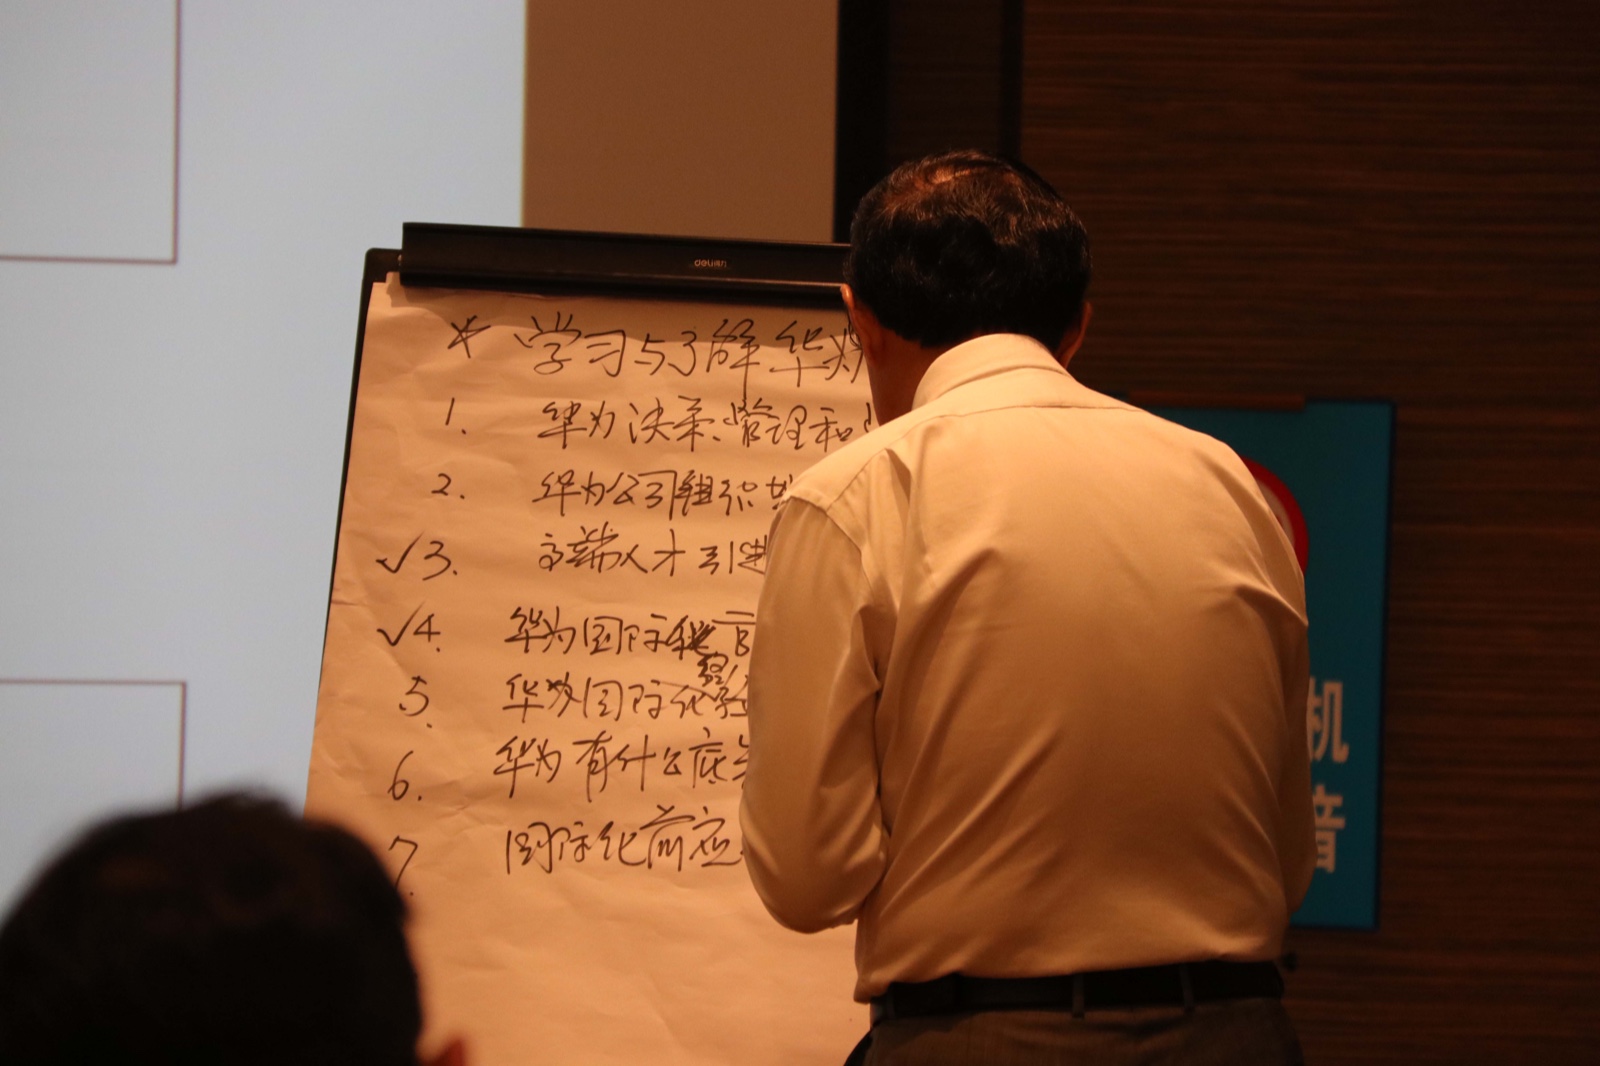 deli得力
* 学习与了解华为
1. 华为决策、管理和
2. 华为公司组织
√3. 高端人才引进
√4. 华为国际
5. 华为国际化经验
6. 华为有什么底
7. 国际化前应
机
音